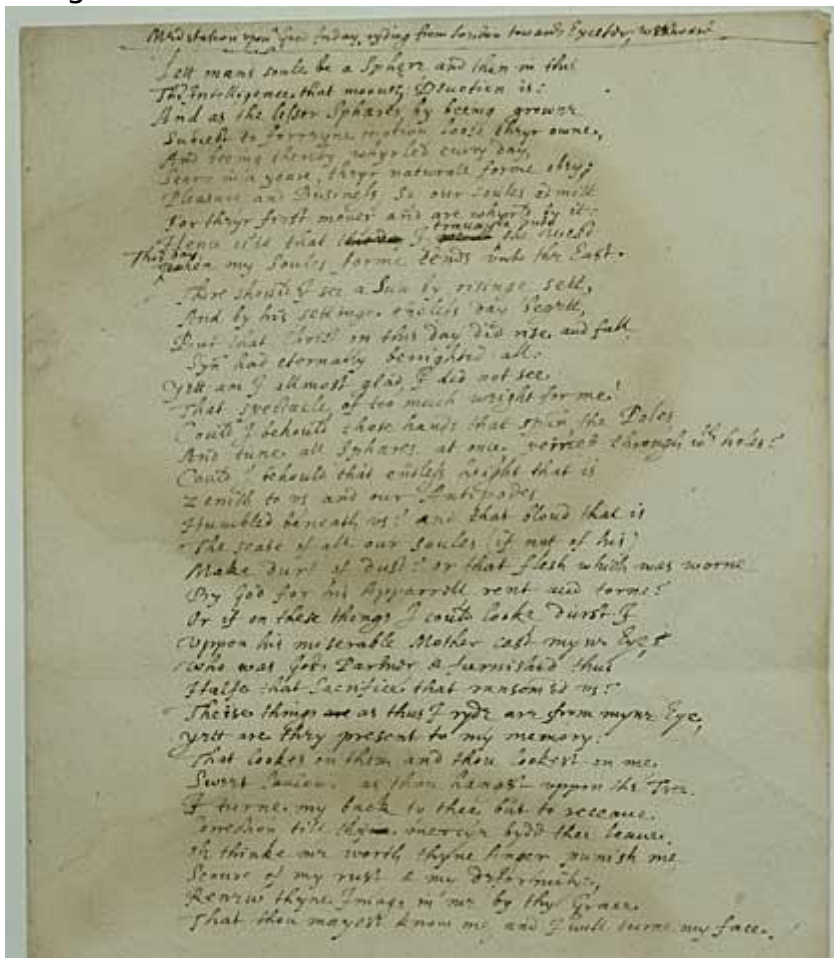 Meditation vpon Good friday, ryding from London towards Exceter, westward
Lett mans soule be a Sphere and then in this
Th'Intelligence that moves, Devotion is:
And as the lesser Sphæres by beeing growne
Subiect to forrayne motion loose thyr owne,
And beeing thereby whyrled every day,
Scarse in a yeare, theyr naturall forme obey;
Pleasure and Businesse So our soules admitt
For theyr first mover and are whyrld by it:
Hence is't that I travayle the West
This day when my Soules forme tends vnto the East.
There should I see a Sun by risinge sett,
And by his settinge endless day begett,
But that Christ on this day did rise and fall
Syn had eternally benighted all:
Yett am I allmost glad, I did not see
That spectacle, of too much weight for me!
Could I behould those hands that span the Poles
And tune all Sphæres at once, peirced through wth holes?
Could I behould that endless height that is
Zenith to vs and our Antipodes
Humbled beneath vs? and that bloud that is
The seate of all our soules (if not of his)
Make durt of dust? or that flesh which was worne
By God for his Apparrell rent and torne?
Or if on these things I could looke durst I
Vppon his miserable Mother cast myne Eye,
Who was Gods Partner & furnished thus
Halfe that Sacrifice that ransomed vs?
Theise things as thus I ryde are from myne Eye,
Yett are they present to my memory:
That lookes on them and thou lookest on me
Sweet Saviour as thou hangst vppon the Tree.
I turne my back to thee but to receave
Correction till thy mercyes bydd thee leave,
Oh thinke me worth thyne Anger punish me
Scoure of my rust & my deformitie,
Renew thyne Image in me by thy Grace
That thou mayest know me, and I will turne my face.